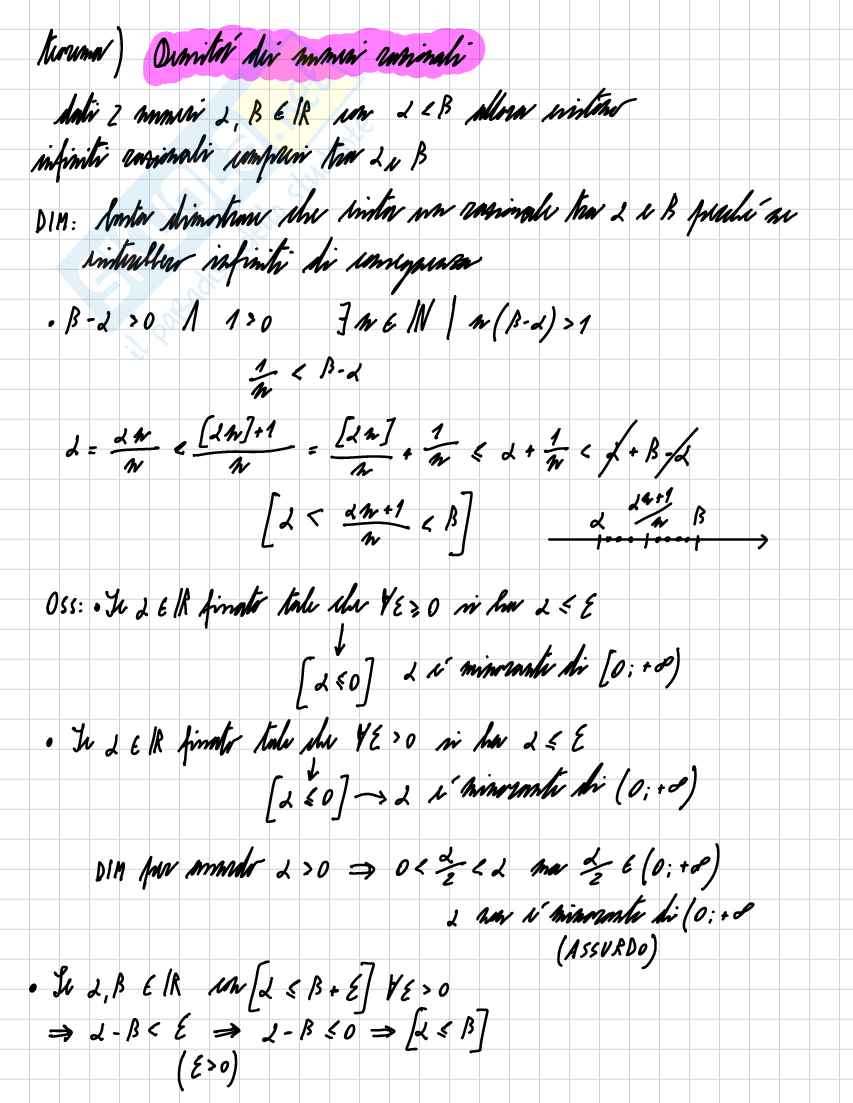 teorema) Densità dei numeri razionali
dati 2 numeri α, β ∈ ℝ con α < β allora esistono
infiniti razionali compresi tra α e β
DIM: basta dimostrare che esista un razionale tra α e β perché ne
esisterebbero infiniti di conseguenza
• β - α > 0 ∧ 1 > 0 ∃ n ∈ ℕ | n(β-α) > 1
1/n < β - α
α = αn/n < ([αn]+1)/n = [αn]/n + 1/n ≤ α + 1/n < α + β - α
[α < (αn+1)/n < β]
α (αn+1)/n β
Oss: • Se α ∈ ℝ fissato tale che ∀ε ≥ 0 si ha α ≤ ε
↓
[α ≤ 0] α è minorante di [0; +∞)
• Se α ∈ ℝ fissato tale che ∀ε > 0 si ha α ≤ ε
↓
[α ≤ 0] → α è minorante di (0; +∞)
DIM per assurdo α > 0 ⇒ 0 < α/2 < α ma α/2 ∈ (0; +∞)
α non è minorante di (0; +∞
(ASSURDO)
• Se α, β ∈ ℝ con [α ≤ β + ε] ∀ε > 0
⇒ α - β < ε ⇒ α - β ≤ 0 ⇒ [α ≤ β]
(ε > 0)